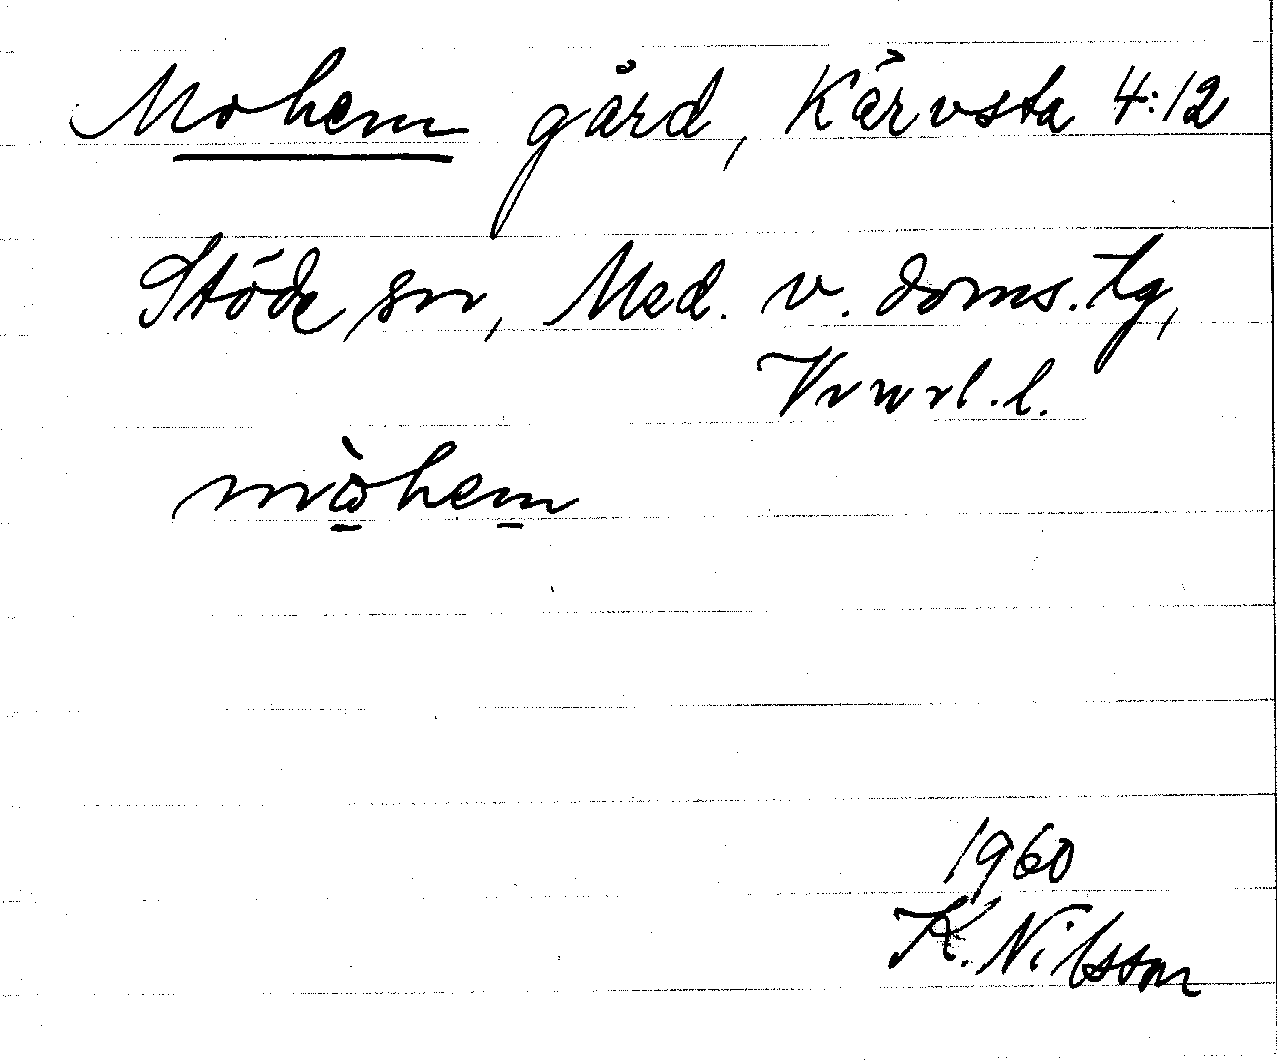 Mohem gård, Kärvsta 4:12
Stöde sn, Med. v. doms. tg,
Vrnrl. l.
mòhem
1960
K. Nilsson